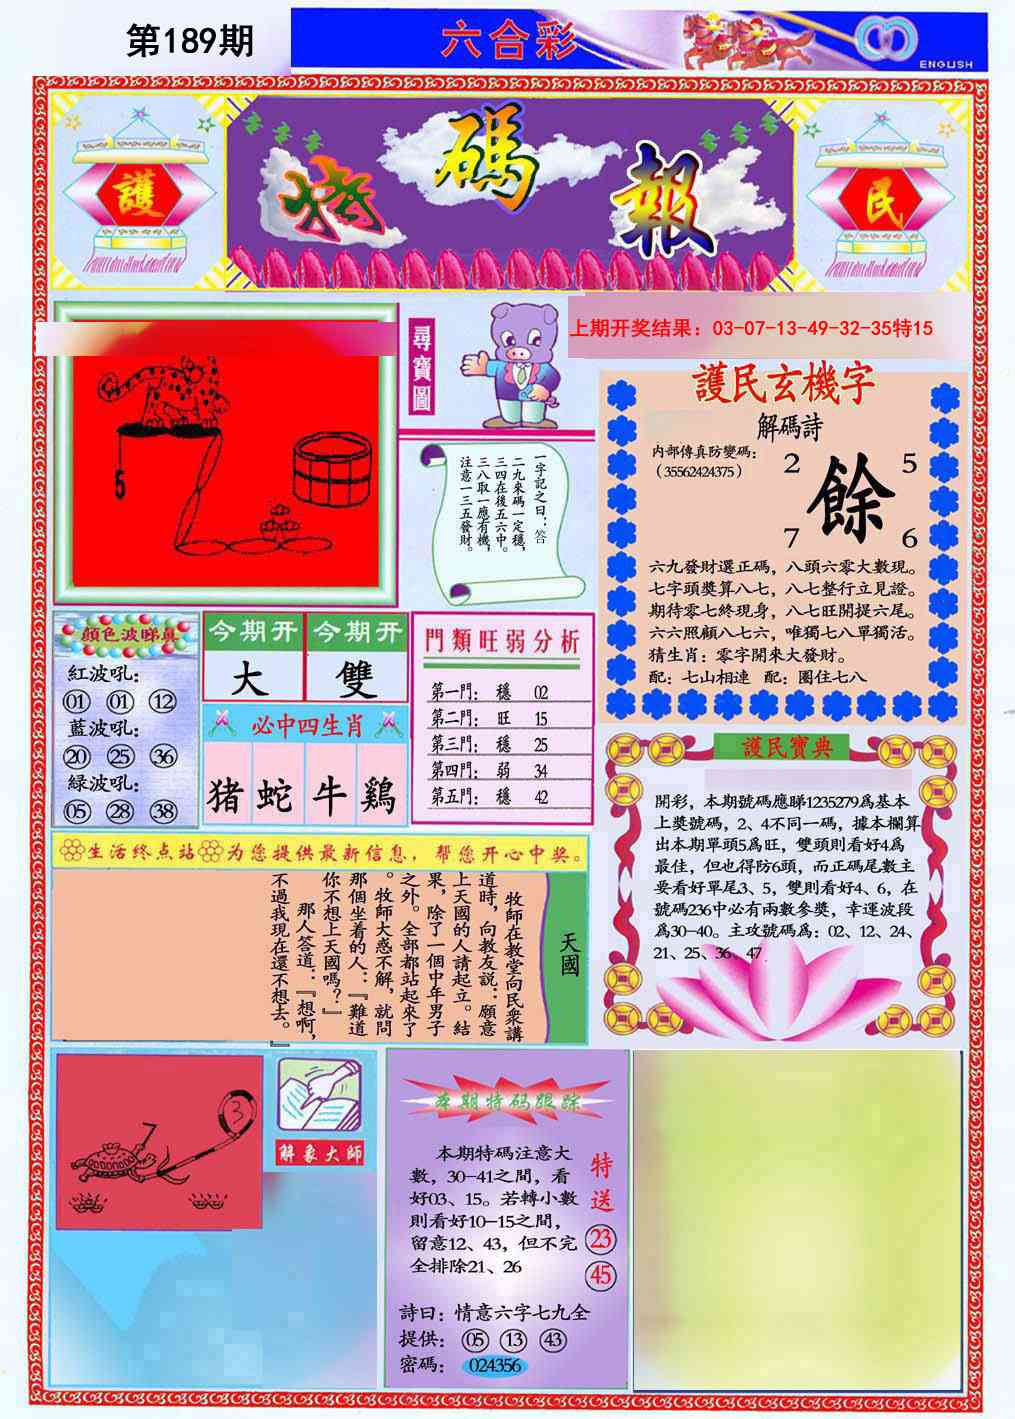 第189期
六合彩
ENGLISH
護
特碼報
民
上期开奖结果：03-07-13-49-32-35特15
尋寶圖
5
一字記之曰：答
二九來碼一定穩，
三四在後五六中。
三八取一應有機，
注意一三五發財。
護民玄機字
解碼詩
内部傳真防變碼：
（35562424375）
2 5
餘
7 6
六九發財選正碼，八頭六零大數現。
七字頭獎算八七，八七整行立見證。
期待零七終現身，八七旺開提六尾。
六六照顧八七六，唯獨七八單獨活。
猜生肖：零字開來大發財。
配：七山相連 配：圈住七八
顔色波睇真
紅波吼：
01 01 12
藍波吼：
20 25 36
緑波吼：
05 28 38
今期开 今期开
大 雙
必中四生肖
猪 蛇 牛 鷄
門類旺弱分析
第一門： 穩 02
第二門： 旺 15
第三門： 穩 25
第四門： 弱 34
第五門： 穩 42
護民寶典
開彩，本期號碼應睇1235279爲基本
上獎號碼，2、4不同一碼，據本欄算
出本期單頭5爲旺，雙頭則看好4爲
最佳，但也得防6頭，而正碼尾數主
要看好單尾3、5，雙則看好4、6，在
號碼236中必有兩數參獎，幸運波段
爲30-40。主攻號碼爲：02、12、24、
21、25、36、47
生活终点站 为您提供最新信息，帮您开心中奖。
天國
牧師在教堂向民衆講
道時，向教友説：願意
上天國的人請起立。結
果，除了一個中年男子
之外。全部都站起來了
。牧師大惑不解，就問
那個坐着的人：『難道
你不想上天國嗎？』
那人答道：『想啊，
不過我現在還不想去。』
7
3
解象大師
本期特码跟踪
本期特碼注意大
數，30-41之間，看
好03、15。若轉小數
則看好10-15之間，
留意12、43，但不完
全排除21、26
特送
23
45
詩曰：情意六字七九全
提供： 05 13 43
密碼： 024356